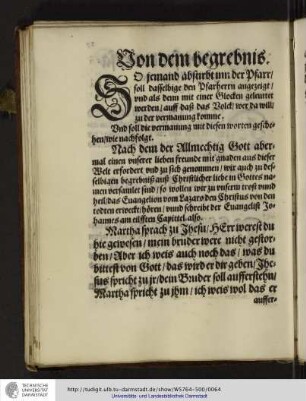 Von dem begrebnis.
SO jemand absturbt inn der Pfarr/
soll dasselbige den Pfarherrn angezeigt/
vnd als denn mit einer Glocken geleuttet
werden/ auff daß das Volck/ wer da will/
zu der vermanung komme.
Vnd soll die vermanung mit diesen worten gesche-
hen/ wie nachfolgt.
Nach dem der Allmechtig Gott aber-
mal einen vnserer lieben freunde mit gnaden aus dieser
Welt erfordert vnd zu sich genommen/ wir auch zu des-
selbigen begrebnis auß Christlicher liebe in Gottes na-
men versamlet sind/ so wollen wir zu vnserm trost vnnd
heil/ das Euangelion vom Lazaro den Christus von den
todten erweckt/ hören/ vnnd schreibt der Euangelist Jo-
hannes am eilfften Capittel also.
Martha sprach zu Jhesu/ HErr werest du
hie gewesen/ mein bruder were nicht gestor-
ben/ Aber ich weis auch noch das/ was du
bittest von Gott/ das wird er dir geben/ Jhe-
sus spricht zu jr/ dein Bruder soll aufferstehn/
Martha spricht zu jhm/ ich weis wol das er
auffer-
TECHNISCHE
UNIVERSITÄT
DARMSTADT
http://tudigit.ulb.tu-darmstadt.de/show/W5764-500/0064
Universitäts- und Landesbibliothek Darmstadt